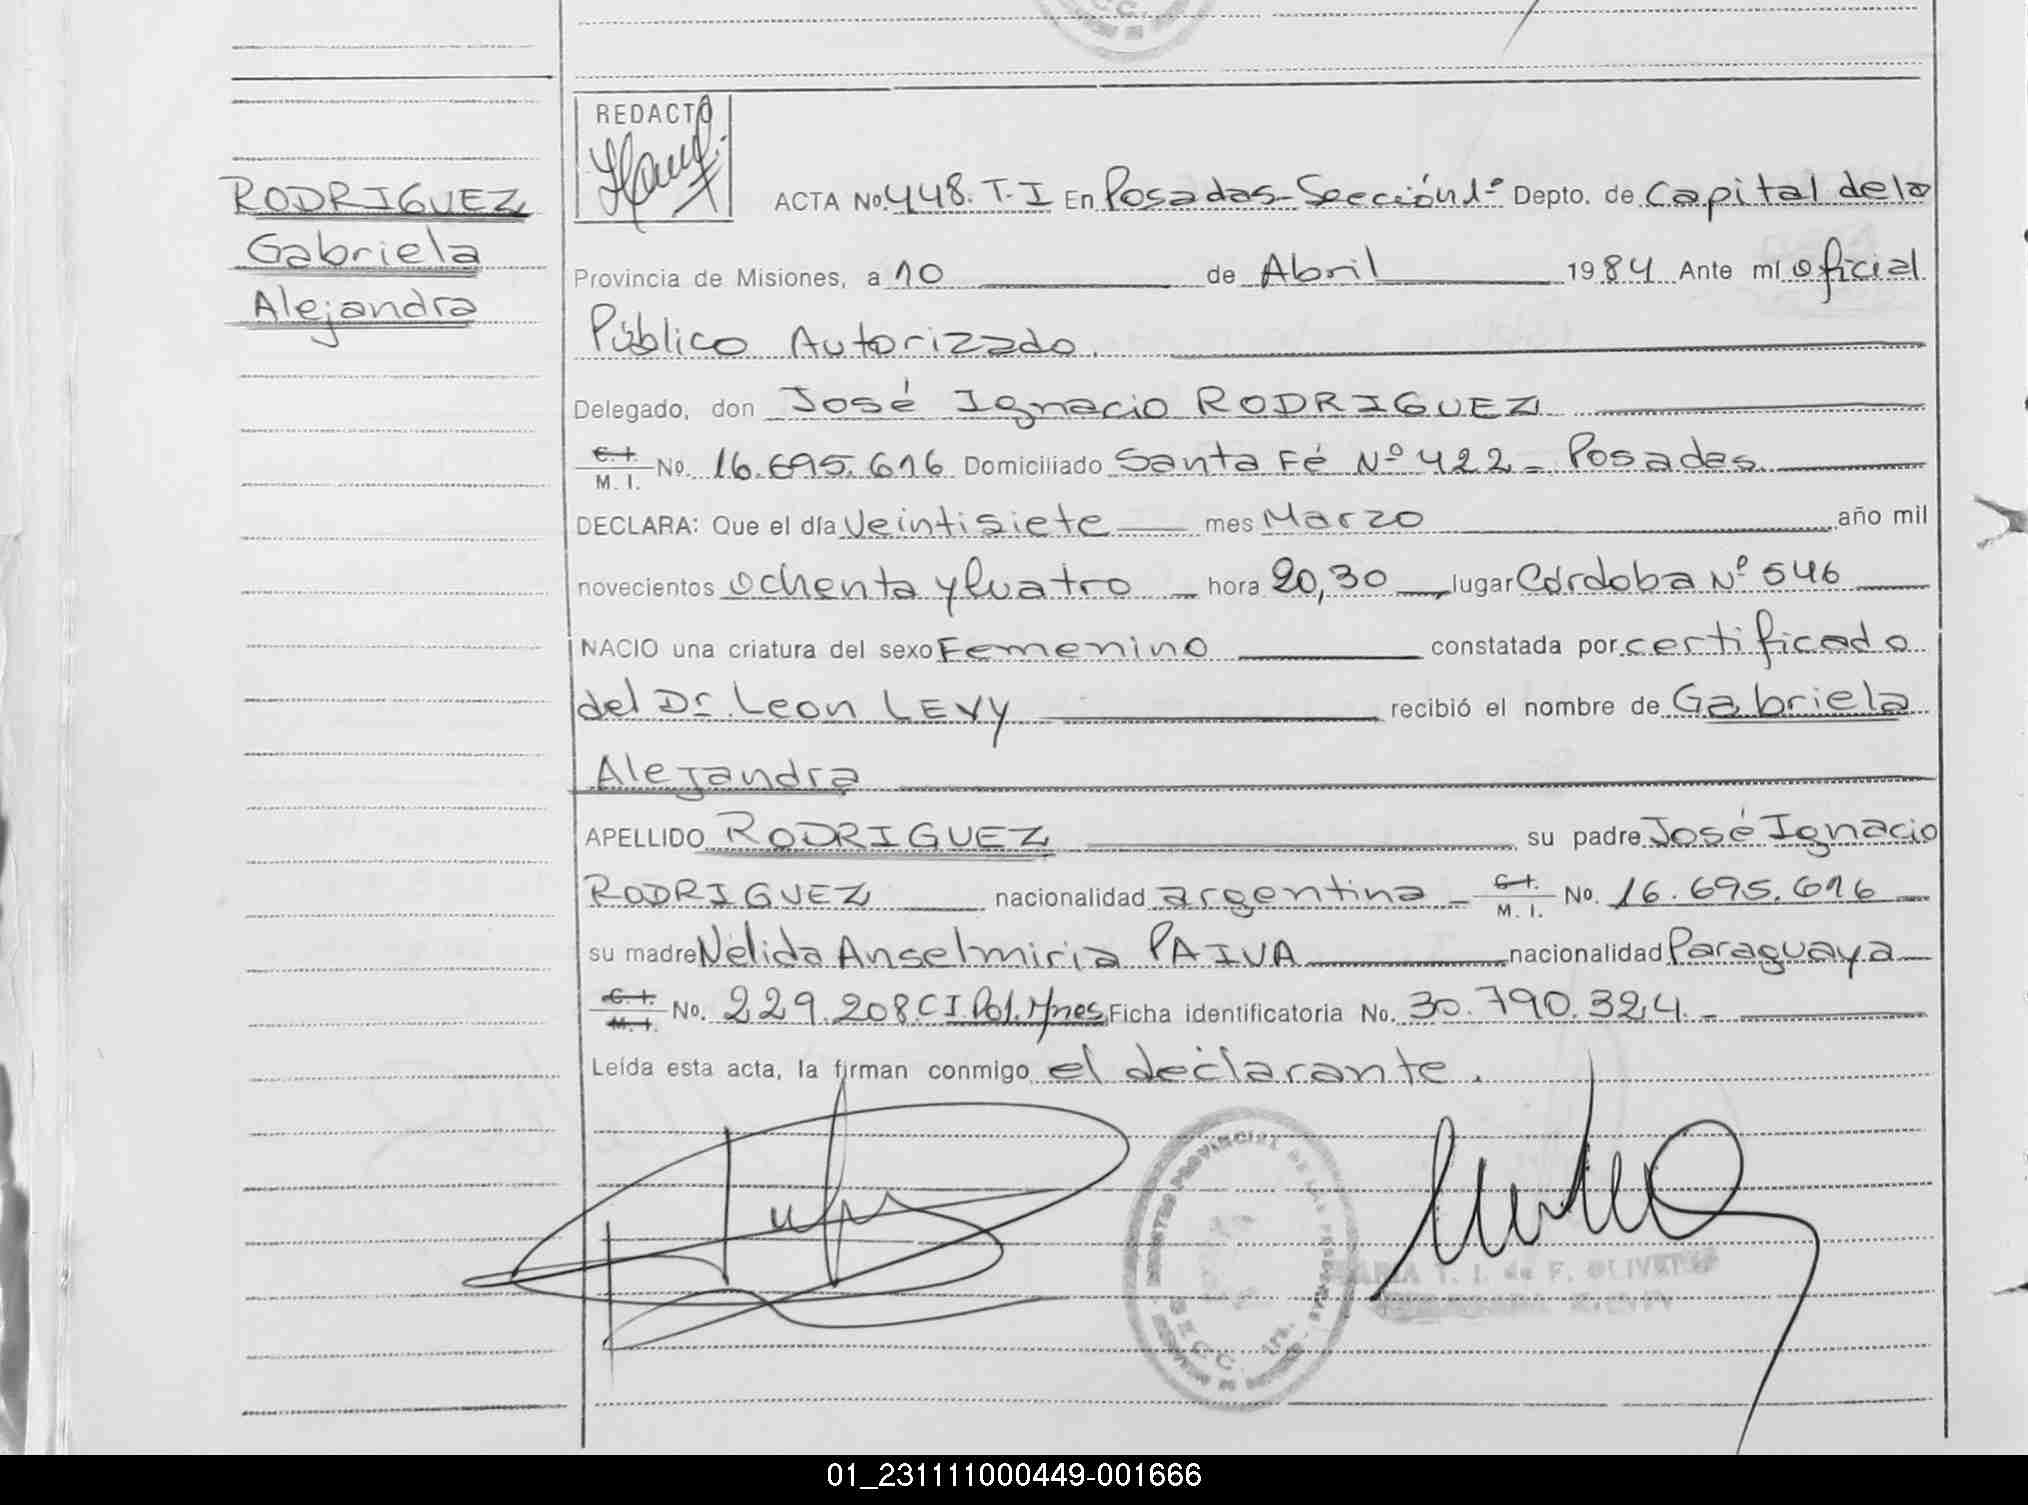 RODRIGUEZ
Gabriela
Alejandra
REDACTO
ACTA No. 448. T.I En Posadas-Sección 1º Depto. de Capital de la
Provincia de Misiones, a 10 de Abril 1984 Ante mí oficial
Público Autorizado.
Delegado, don José Ignacio RODRIGUEZ
C.I.
M.I. No. 16.695.616 Domiciliado Santa Fé Nº 422 - Posadas
DECLARA: Que el día Veintisiete mes Marzo año mil
novecientos ochenta y Cuatro hora 20,30 lugar Córdoba Nº 546
NACIO una criatura del sexo Femenino constatada por certificado
del Dr. Leon LEVY recibió el nombre de Gabriela
Alejandra
APELLIDO RODRIGUEZ su padre José Ignacio
RODRIGUEZ nacionalidad argentina - C.I.
M.I. No. 16.695.616
su madre Nélida Anselmiria PAIVA nacionalidad Paraguaya
C.I.
M.I. No. 229.208.C I. Pol. Mnes Ficha identificatoria No. 30.790.324. -
Leída esta acta, la firman conmigo el declarante.
REGISTRO PROVINCIAL DE LAS PERSONAS
MARIA T. I. de F. OLIVEIRA
01_231111000449-001666